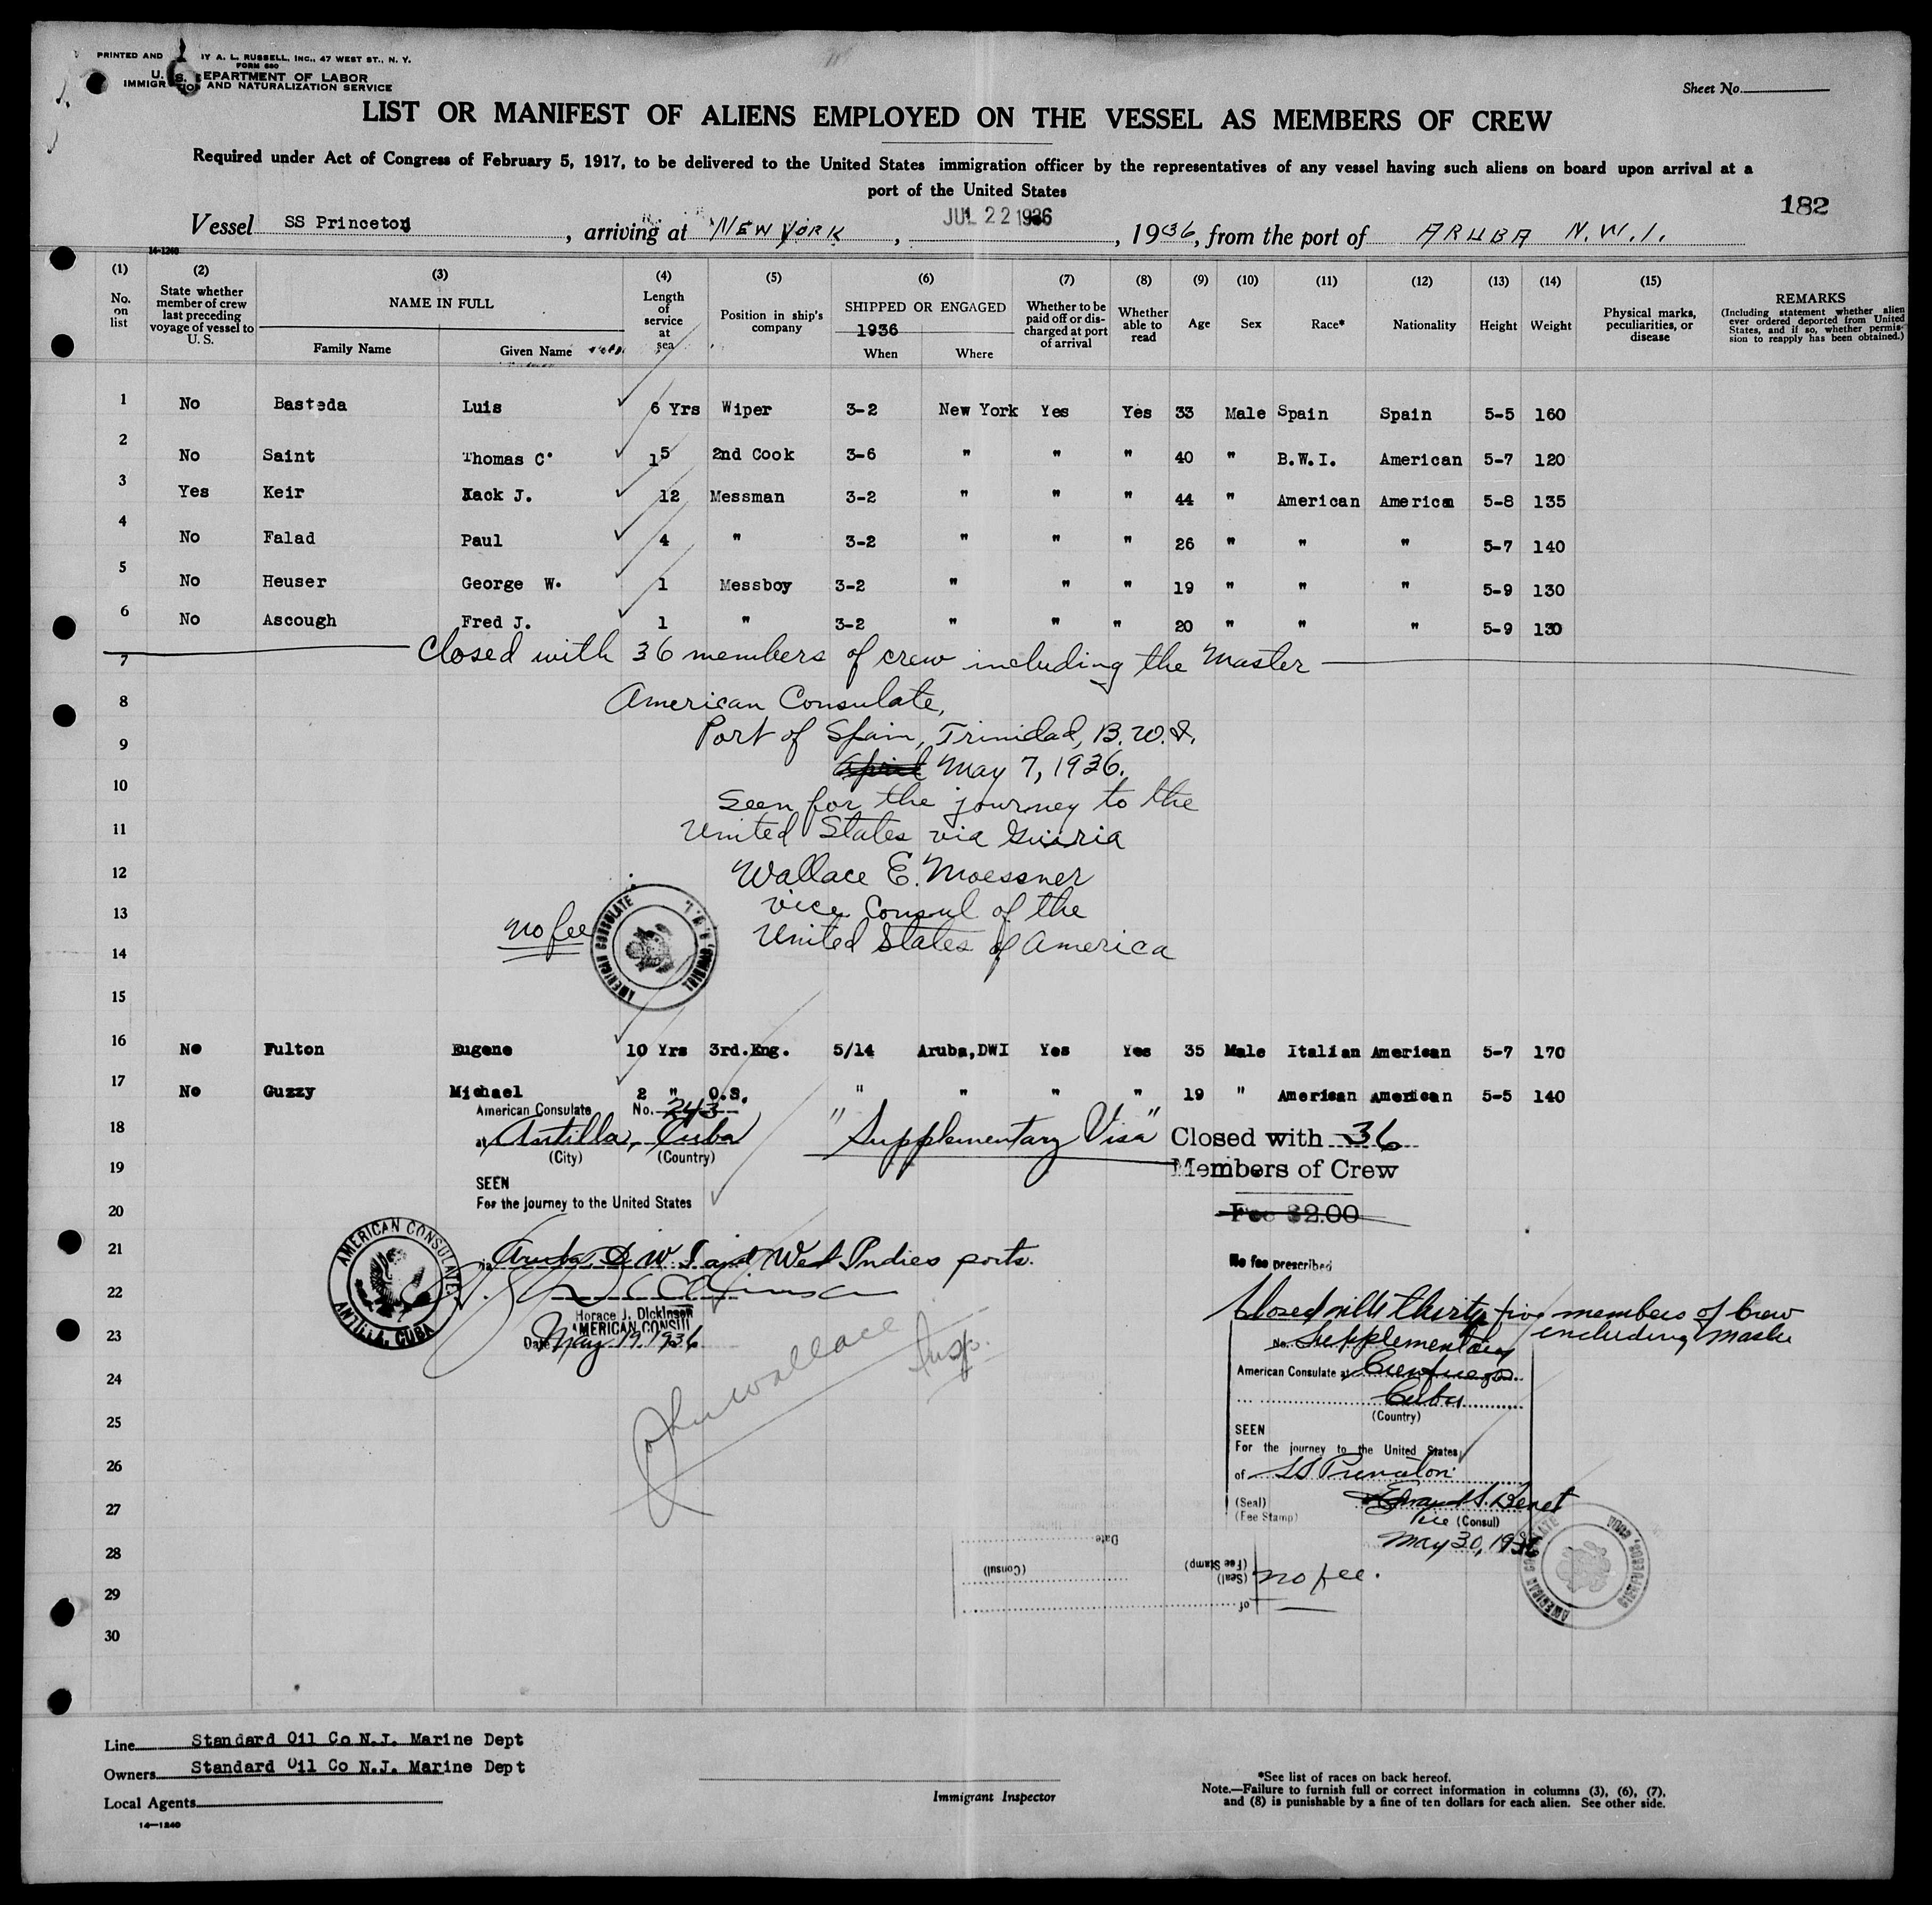 PRINTED AND Y A. L. RUSSELL, INC., 47 WEST ST., N. Y.
FORM 680
U. S. DEPARTMENT OF LABOR
IMMIGRATION AND NATURALIZATION SERVICE
Sheet No.
LIST OR MANIFEST OF ALIENS EMPLOYED ON THE VESSEL AS MEMBERS OF CREW
Required under Act of Congress of February 5, 1917, to be delivered to the United States immigration officer by the representatives of any vessel having such aliens on board upon arrival at a
port of the United States
182
Vessel SS Princeton, arriving at NEW YORK, JUL 22 1936, 1936, from the port of ARUBA N.W.I.
14-1240
(1) (2) (3) (4) (5) (6) (7) (8) (9) (10) (11) (12) (13) (14) (15)
No. on list State whether member of crew last preceding voyage of vessel to U. S. NAME IN FULL Family Name Given Name Length of service at sea Position in ship's company SHIPPED OR ENGAGED 1936 When Where Whether to be paid off or discharged at port of arrival Whether able to read Age Sex Race* Nationality Height Weight Physical marks, peculiarities, or disease REMARKS (Including statement whether alien ever ordered deported from United States, and if so, whether permission to reapply has been obtained.)
1 No Basteda Luis 6 Yrs Wiper 3-2 New York Yes Yes 33 Male Spain Spain 5-5 160
2 No Saint Thomas C. 15 2nd Cook 3-6 " " " 40 " B.W.I. American 5-7 120
3 Yes Keir Jack J. 12 Messman 3-2 " " " 44 " American America 5-8 135
4 No Falad Paul 4 " 3-2 " " " 26 " " " 5-7 140
5 No Heuser George W. 1 Messboy 3-2 " " " 19 " " " 5-9 130
6 No Ascough Fred J. 1 " 3-2 " " " 20 " " " 5-9 130
7 Closed with 36 members of crew including the Master
8 American Consulate,
9 Port of Spain, Trinidad, B.W.I.
April May 7, 1936.
10 Seen for the journey to the
11 United States via Guiria
12 Wallace E. Moessner
13 Vice Consul of the
no fee
14 United States of America
AMERICAN CONSULATE
TRINIDAD, B.W.I.
15
16 No Fulton Eugene 10 Yrs 3rd.Eng. 5/14 Aruba,DWI Yes Yes 35 Male Italian American 5-7 170
17 No Guzzy Michael 2 " O.S. " " " " 19 " American American 5-5 140
American Consulate No. 243
18 at Antilla, Cuba "Supplementary Visa" Closed with 36
(City) (Country)
19 Members of Crew
SEEN
For the journey to the United States
20 Fee $2.00
21 via Aruba, D.W.I. and West Indies ports.
AMERICAN CONSULATE
ANTILLA, CUBA
No fee prescribed
22 Horace J. Dickinson
AMERICAN CONSUL
Closed with thirty five members of Crew
23 Date May 19, 1936
including Master
No. Supplementary
24 American Consulate at Cienfuegos
John Wallace Insp.
Cuba
25 (Country)
SEEN
26 For the journey to the United States
of SS Princeton
27 (Seal)
(Fee Stamp)
Vice (Consul)
May 30, 1936
28 Date
(Consul)
(Fee Stamp)
(Seal)
no fee.
29 of
AMERICAN CONSULATE
CIENFUEGOS, CUBA
30
Line Standard Oil Co N.J. Marine Dept
Owners Standard Oil Co N.J. Marine Dept
Local Agents
14-1240
Immigrant Inspector
*See list of races on back hereof.
Note.—Failure to furnish full or correct information in columns (3), (6), (7),
and (8) is punishable by a fine of ten dollars for each alien. See other side.